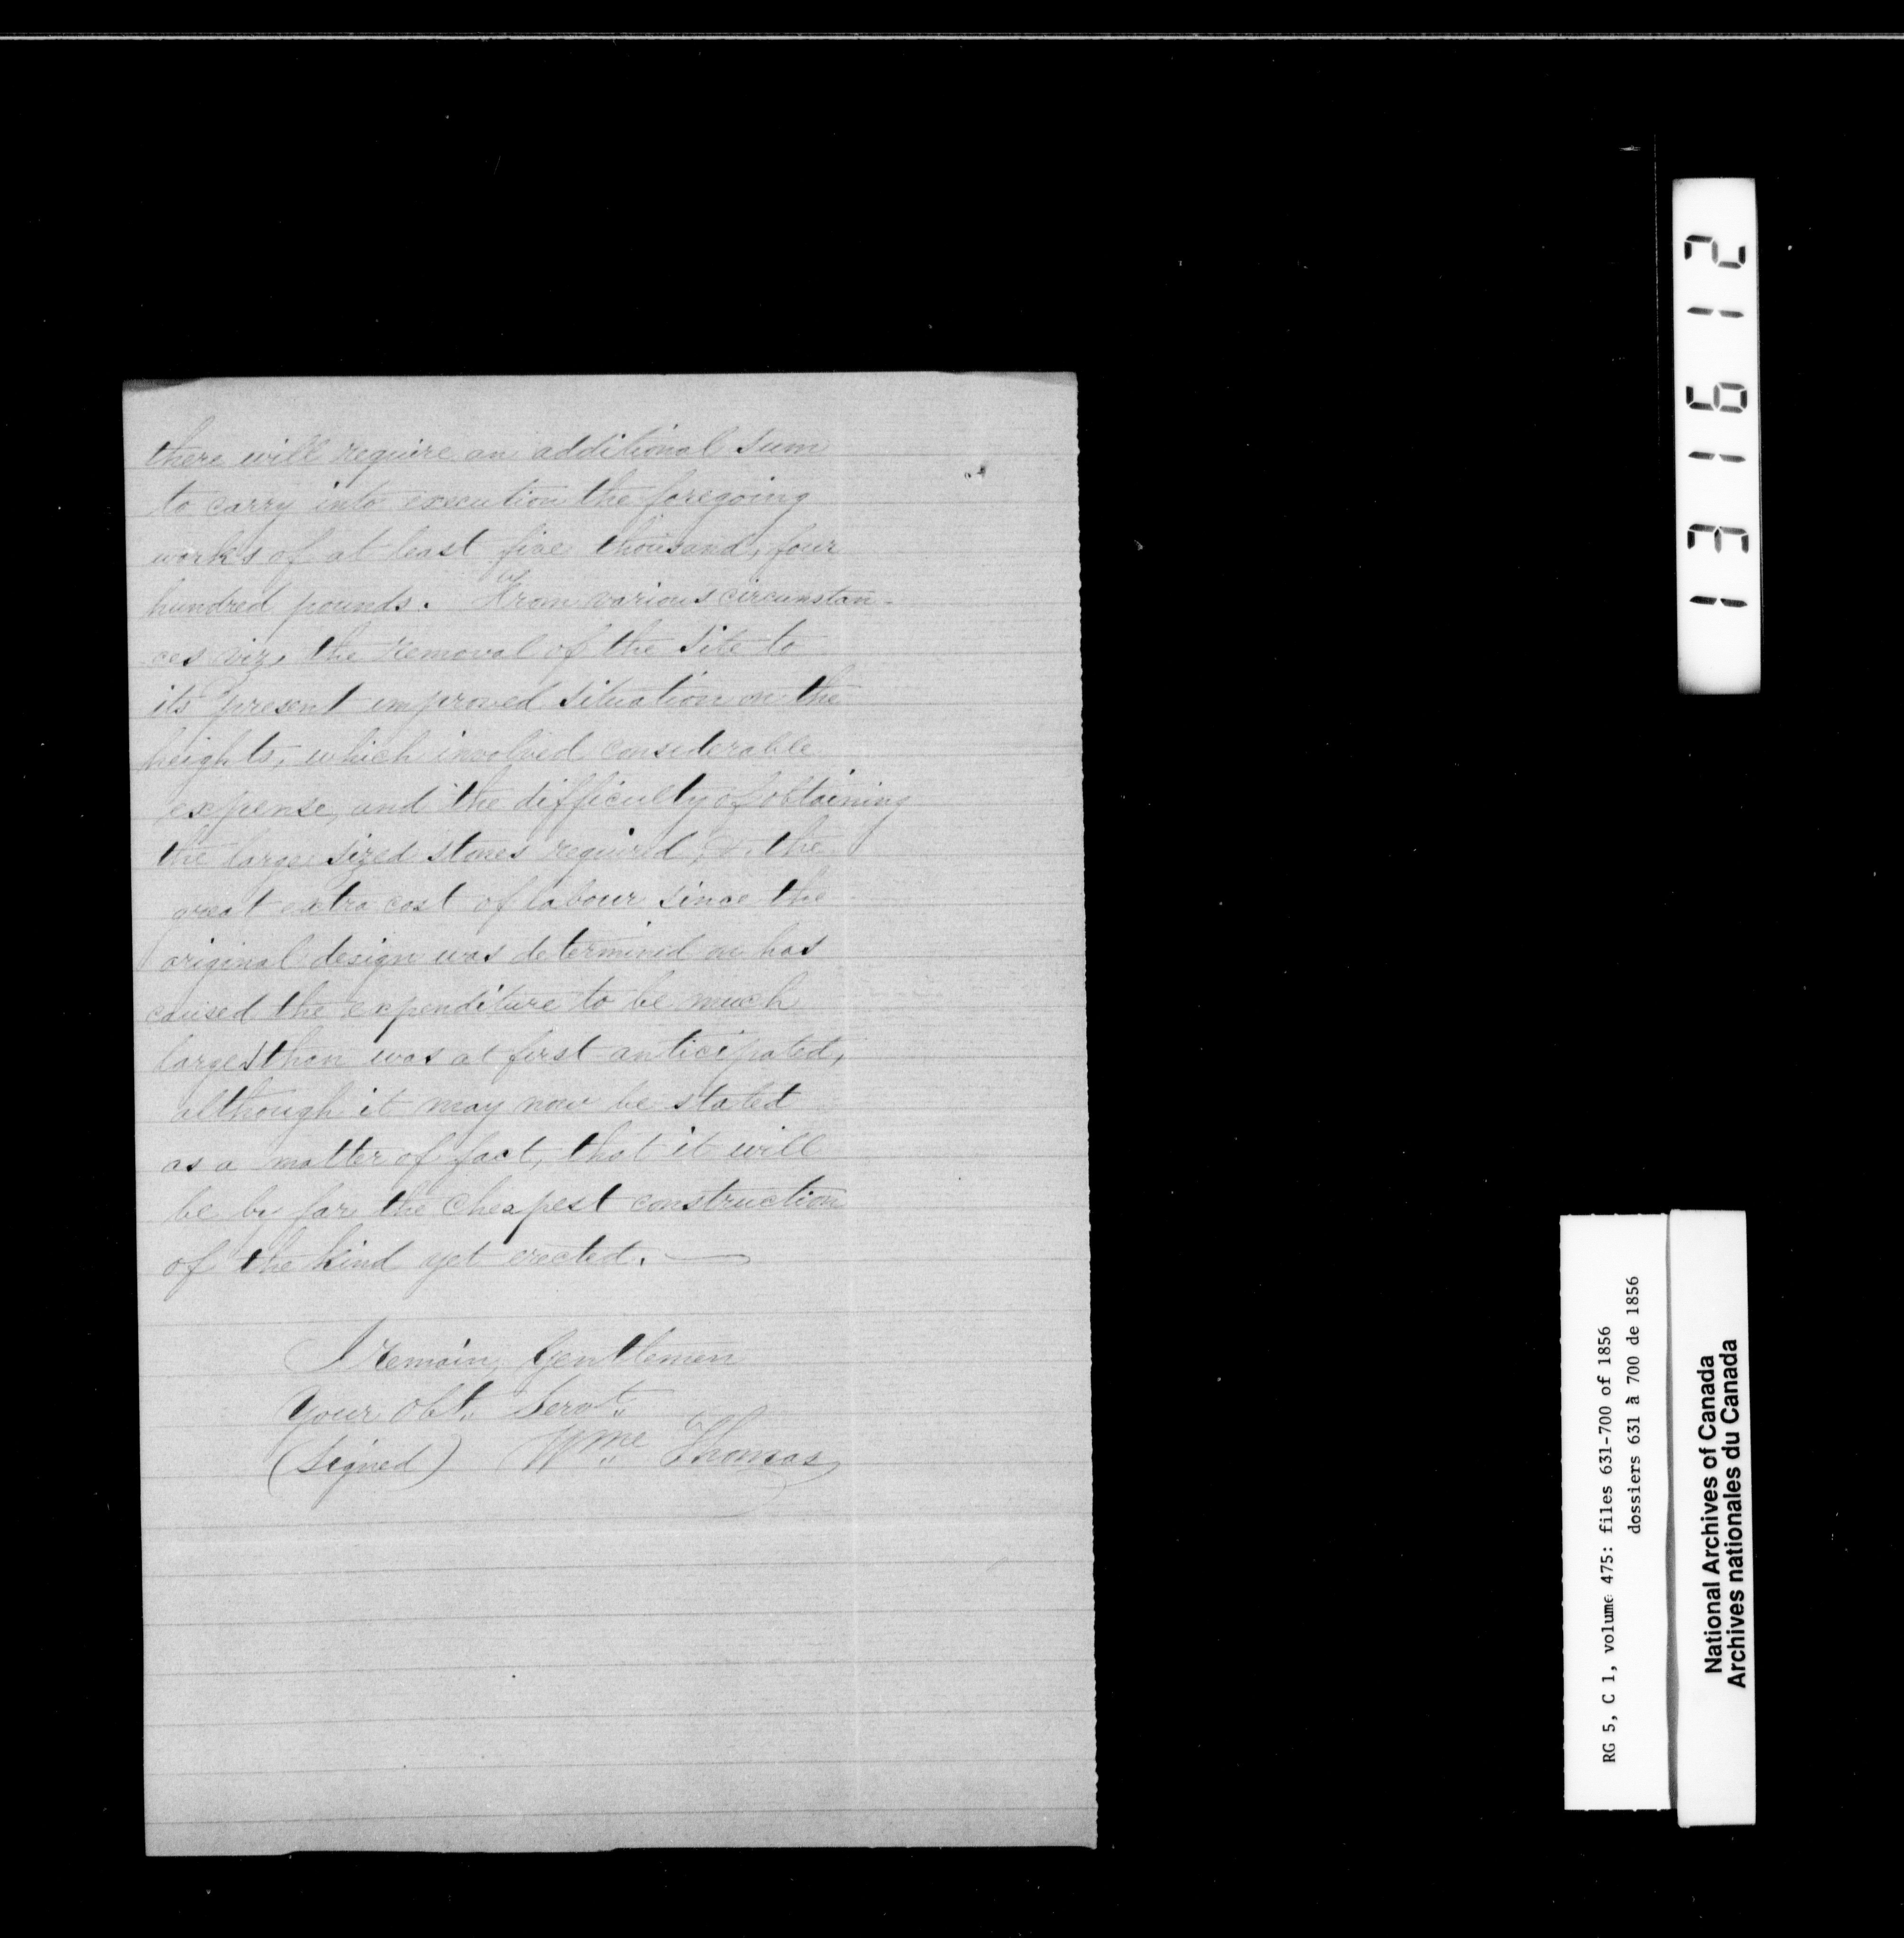 there will require an additional sum
to carry into execution the foregoing
works of at least five thousand, four
hundred pounds. From various circumstan-
ces viz, the removal of the site to
its present improved situation on the
heights, which involved considerable
expense, and the difficulty of obtaining
the large sized stones required, & the
great extra cost of labour since the
original design was determined on has
caused the expenditure to be much
larger than was at first anticipated,
although it may now be stated
as a matter of fact, that it will
be by far the cheapest construction
of the kind yet erected.
I remain, Gentlemen
Your Obt. Servt.
(Signed) Wme Thomas
131612
RG 5, C 1, volume 475: files 631-700 of 1856
dossiers 631 à 700 de 1856
National Archives of Canada
Archives nationales du Canada